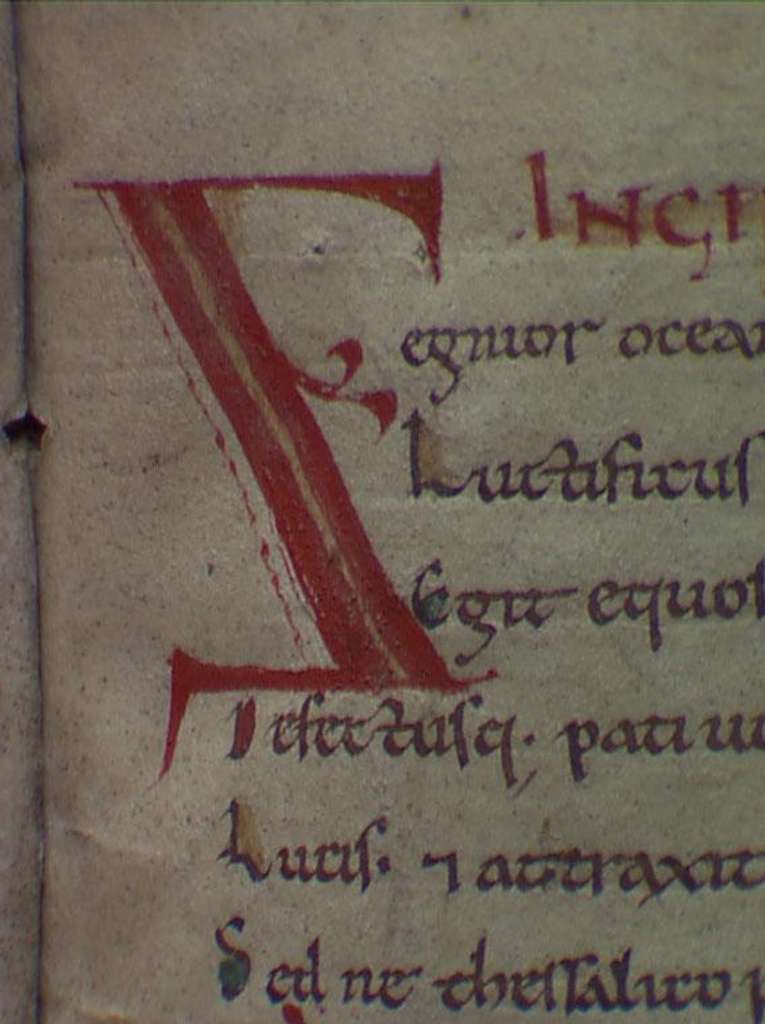 INCI
Segnior ocea
Luctificus
Egit equos
Defectusq; pati u
Lucis. ⁊ attraxit
Sed ne thessalico p